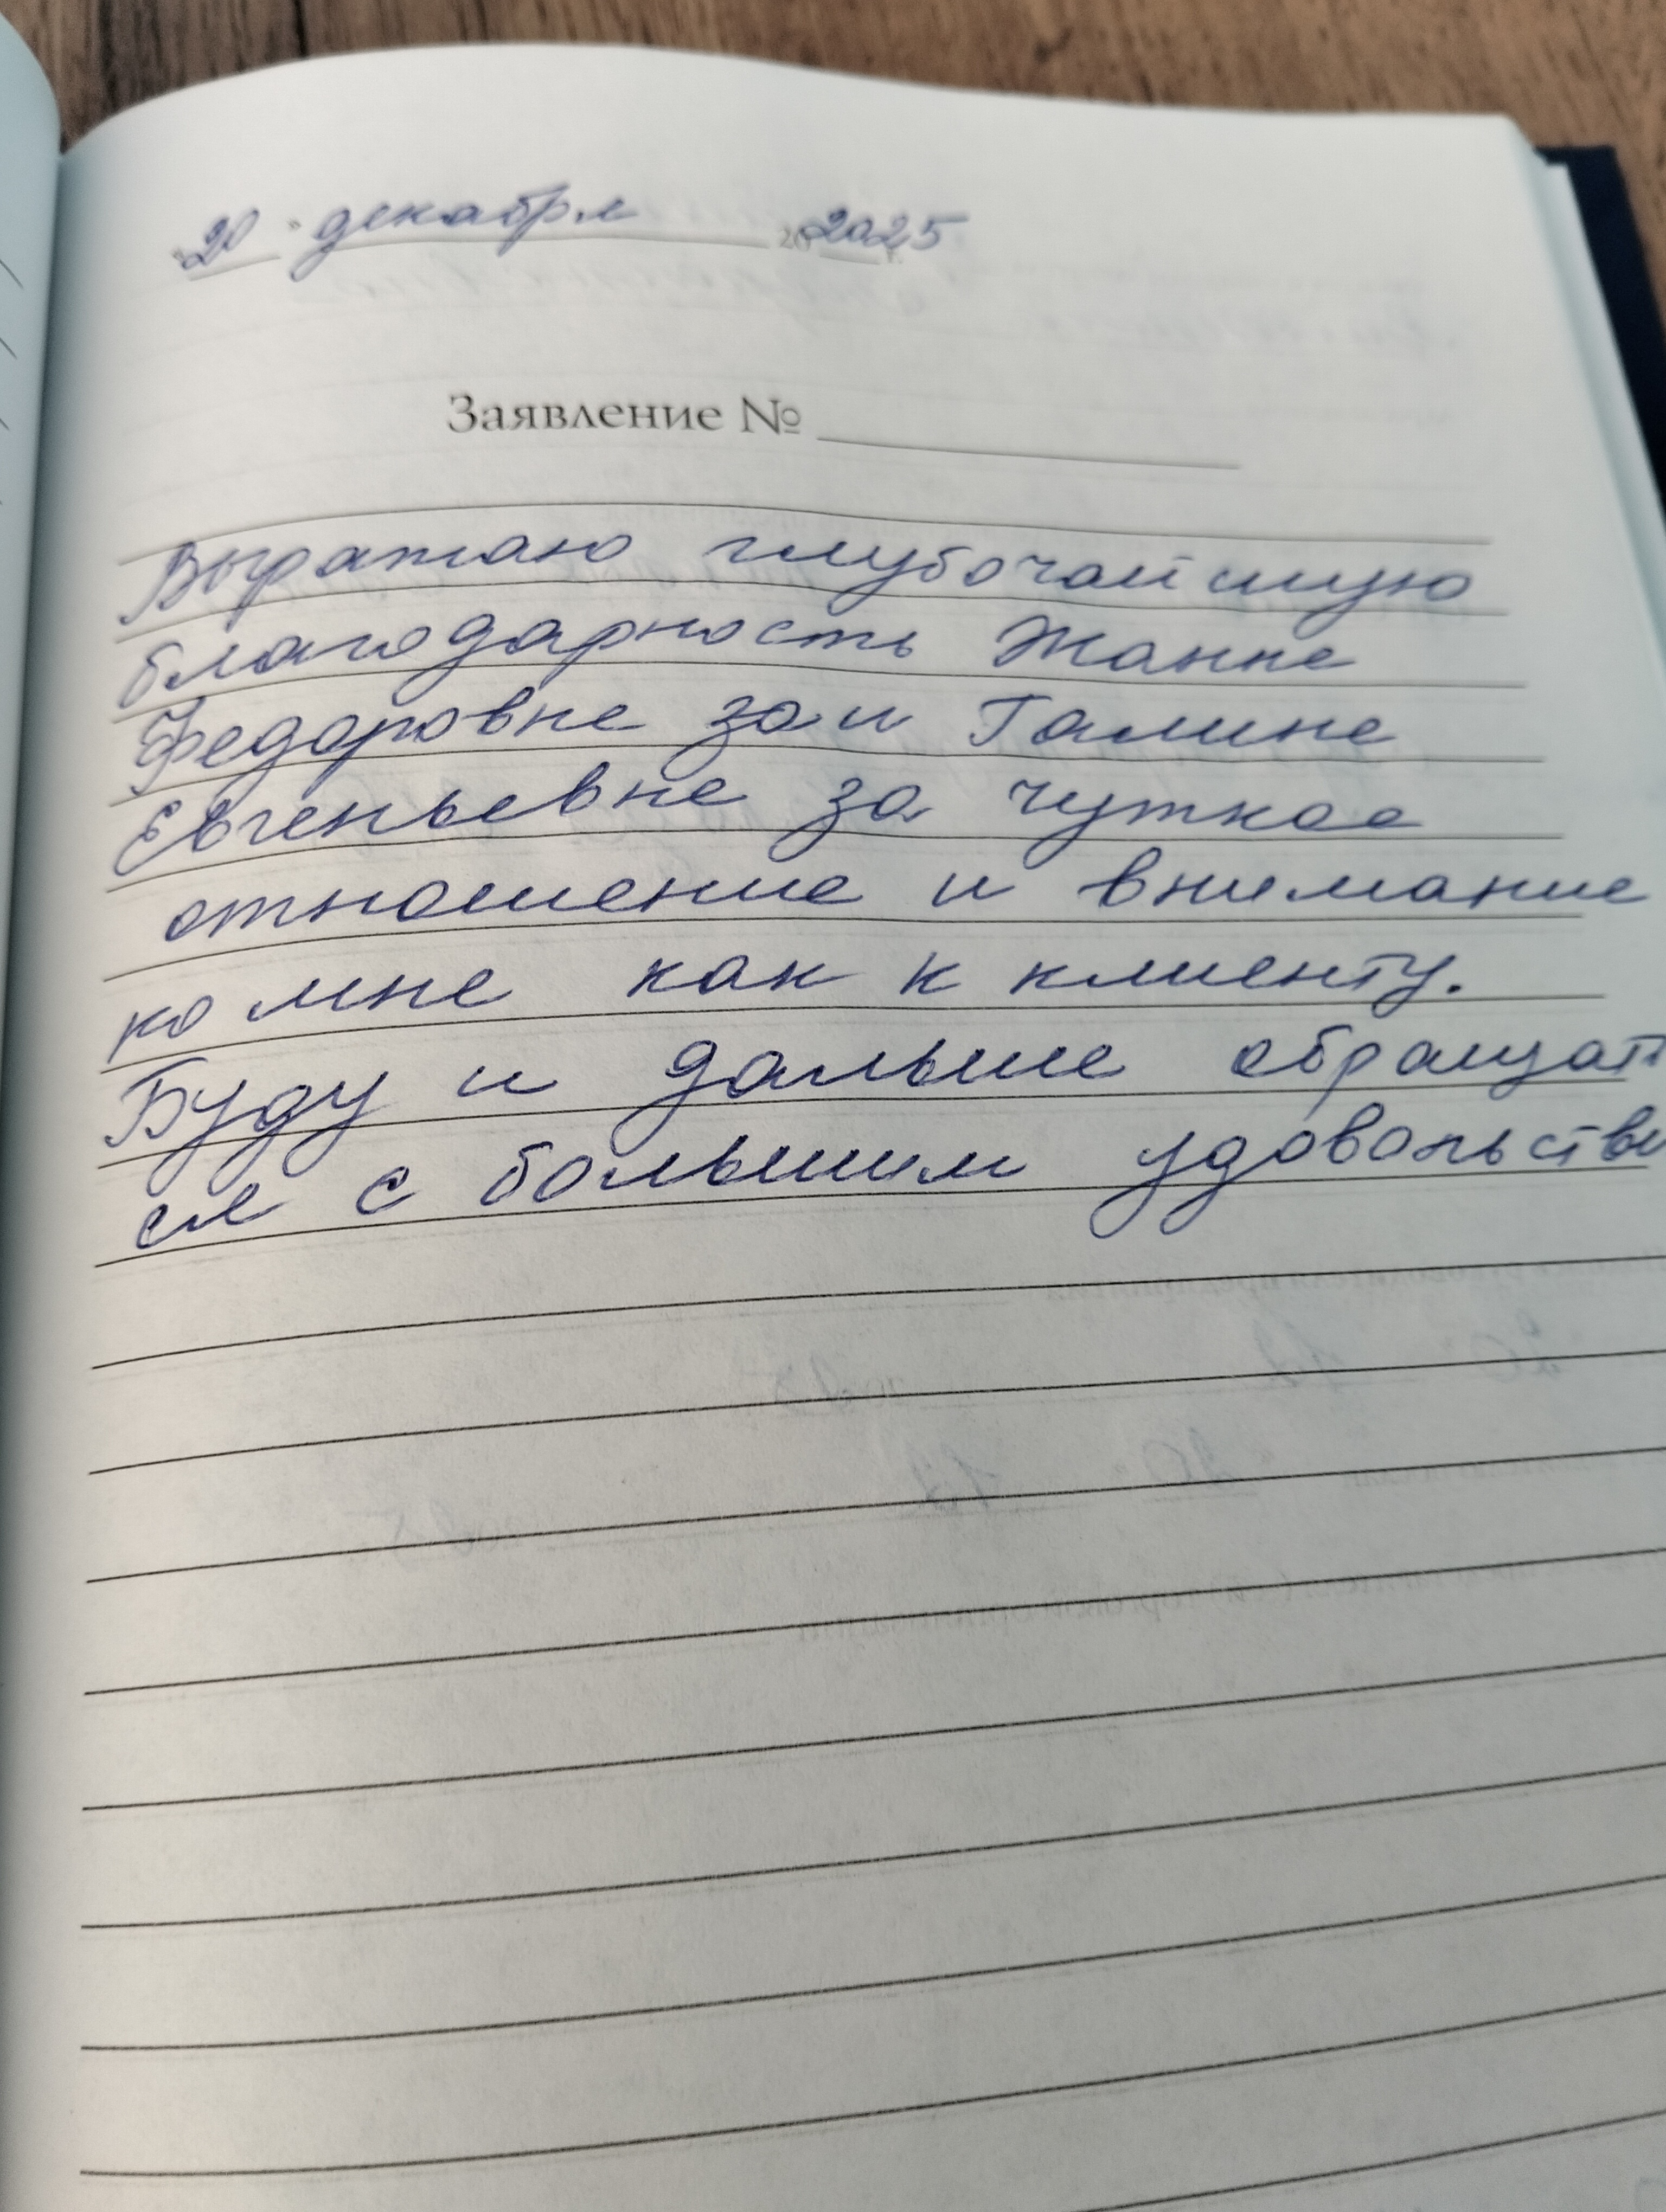 "20" декабря 20 2025 г.
Заявление № ____
Выражаю глубочайшую
благодарность Жанне
Федоровне за и Галине
Евгеньевне за чуткое
отношение и внимание
ко мне как к клиенту.
Буду и дальше обращат
ся с большим удовольстви